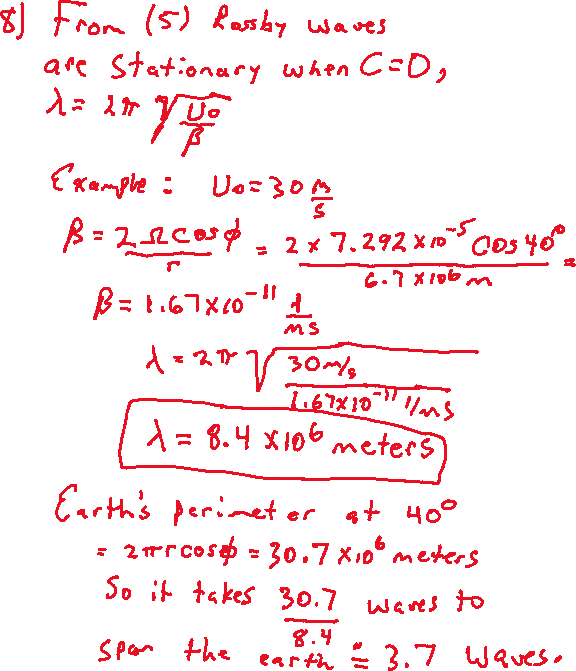 8) From (5) Rossby waves
are Stationary when C=0,
λ = 2π √(U₀/β)
Example : U₀ = 30 m/s
β = 2Ωcosφ/r = 2 x 7.292 x 10⁻⁵ Cos 40⁰ / 6.7 x 10⁶ m =
β = 1.67 x 10⁻¹¹ 1/ms
λ = 2π √(30 m/s / 1.67x10⁻¹¹ 1/ms)
λ = 8.4 x10⁶ meters
Earth's perimeter at 40⁰
= 2πrcosφ = 30.7 x10⁶ meters
So it takes 30.7/8.4 waves to
span the earth ≅ 3.7 waves.